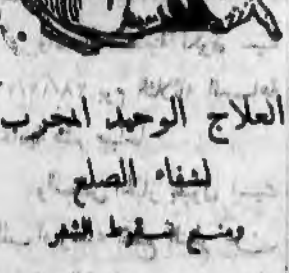 العلاج الوحيد المجرب
لشفاء الصلع
ومنع سقوط الشعر